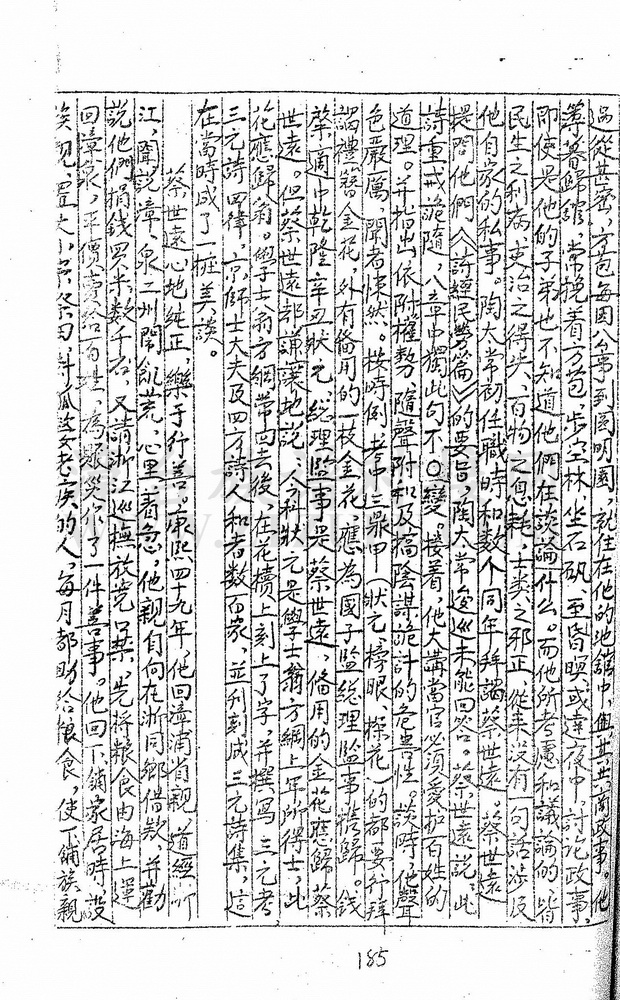 過從甚密，方苞每因公事到圓明園，就住在他的地館中，與其共商政事。他
籌蓄歸館，常挽着方苞，步空林，坐石矶，至昏暝或達夜中，討論政事，
即使是他的子弟也不知道他們在談論什么。而他所考慮和議論的，皆
民生之利病，吏治之得失，百物之息耗，士类之邪正，從来没有一句話涉及
他自家的私事。陶太常初任職時和数个同年拜謁蔡世遠。蔡世遠
提問他們《詩經民勞篇》的要旨，陶太常逡巡未能回答。蔡世遠說，此
詩重戒詭隨，八章中獨此句不〇變。接着，他大講當官必須愛护百姓的
道理。并指出依附權勢，隨聲附和及搞陰謀詭計的危害性。談時，他聲
色嚴厲，聞者悚然。按時例，考中三鼎甲（狀元、榜眼、探花）的都要行拜
謁禮簪金花，外有备用的一枝金花，應為國子監總理監事携歸。錢
棨適中乾隆辛丑狀元，總理監事是蔡世遠，备用的金花應歸蔡
世遠。但蔡世遠却謙讓地說，今科狀元是學士翁方綱上年所得士，此
花應歸翁。學士翁方綱带回去後，在花牘上刻上了字，并撰写三元考
三元詩四律，京師士大夫及四方詩人和者数百家，並刊刻成三元詩集，這
在當時成了一椿美談。
蔡世遠心地純正，樂于行善。康熙四十九年，他回漳浦省親，道經浙
江，聞說漳泉二州鬧飢荒，心里着急，他親自向在浙同鄉借款，并勸
說他們捐錢買米数千石，又請浙江巡撫放寬口禁，先将粮食由海上運
回漳泉，平價賣給百姓，為賑災作了一件善事。他回下鋪家居時，設
族規，置大小宗祭田，對孤嫠老疾的人，每月都助給粮食，使下鋪族親
185